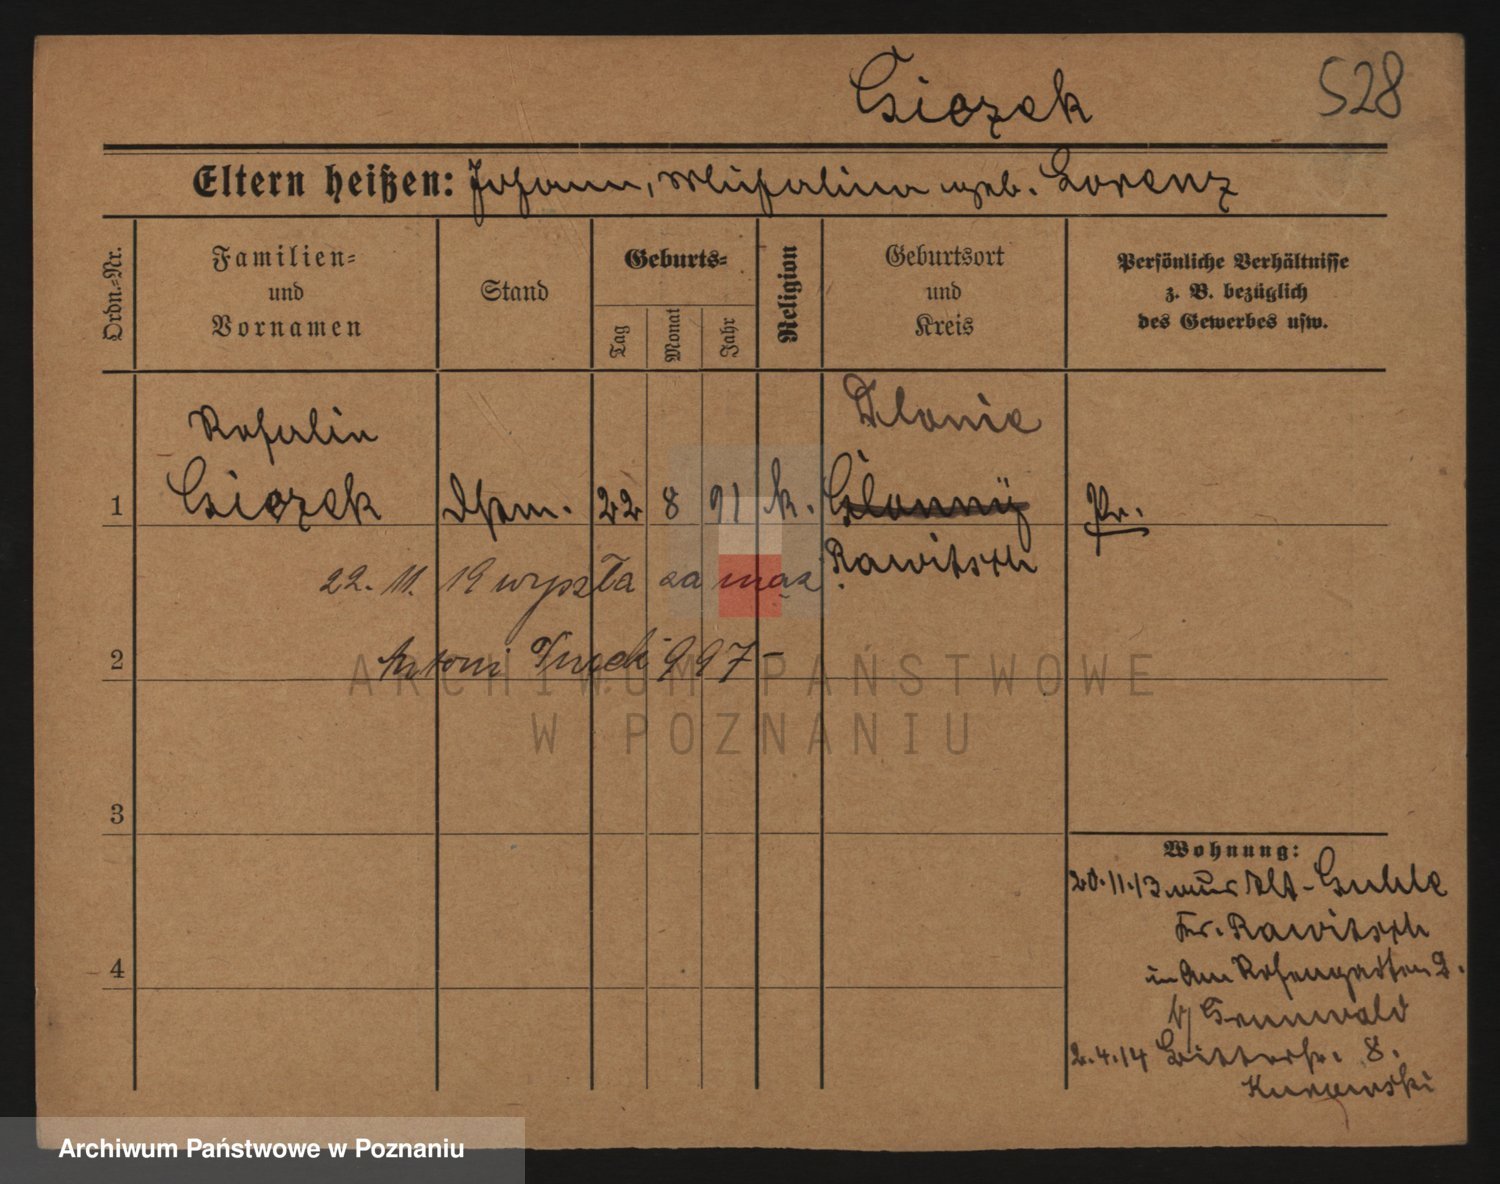 Ciozek
528
Eltern heißen: Johann, Michalina geb. Lorenz
Ordn.-Nr.
Familien-
und
Vornamen
Stand
Geburts-
Tag
Monat
Jahr
Religion
Geburtsort
und
Kreis
Persönliche Verhältnisse
z. B. bezüglich
des Gewerbes usw.
Rosalie
Dlonie
1
Ciozek
22
8
91
k.
Pr.
Rawitsch
22. 11. 19 wyszła za mąż
2
Antoni 997-
ARCHIWUM PAŃSTWOWE
W POZNANIU
3
Wohnung:
20.11.13 aus Alt-Guhle
Kr. Rawitsch
4
in Am Rosengarten 2.
b/ Grunwald
2.4.14 8.
Kurowski
Archiwum Państwowe w Poznaniu